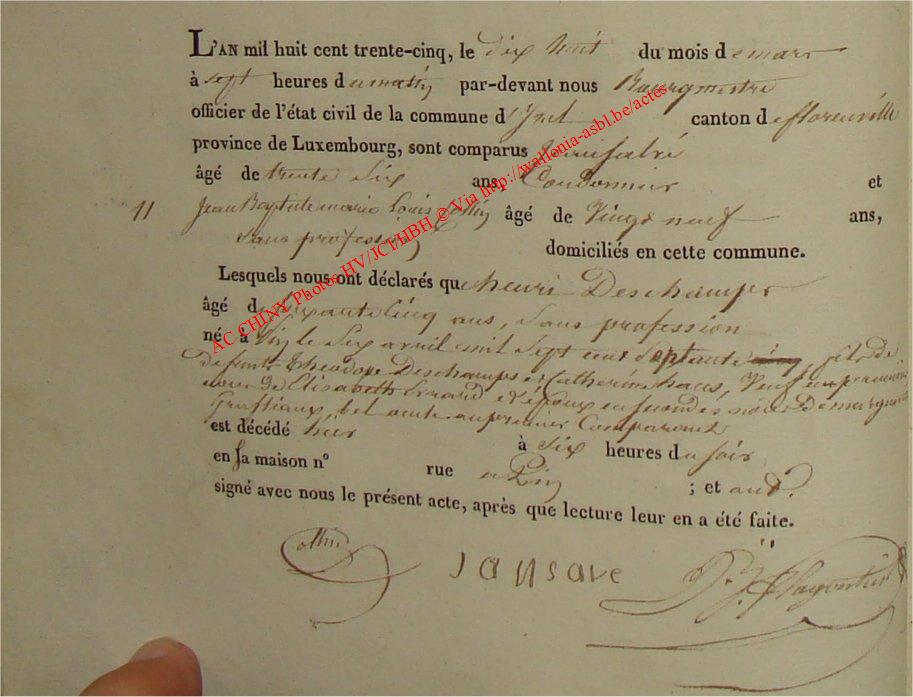 L'AN mil huit cent trente-cinq, le dix huit du mois de mars
à sept heures du matin par-devant nous Bourgmestre
officier de l'état civil de la commune d'Izel canton de florenville
province de Luxembourg, sont comparus
âgé de trente six ans Cordonnier et
11 Jean Baptiste marie Louis Collin âgé de Vingt neuf ans,
Sans profession domiciliés en cette commune.
Lesquels nous ont déclarés que henri Deschamps
âgé de Soixante Cinq ans, Sans profession
né à Pin le Six avril mil Sept cent Septante fils de
defunts Théodore Deschamps et Catherine haus, Veuf en premieres
noces de Elisabeth Errard et époux en secondes noces De marguerite
bel oncle au premier Comparant
est décédé hier à Six heures du soir
en sa maison n° rue a Pin ; et ont
signé avec nous le présent acte, après que lecture leur en a été faite.
Collin J a n s a v e
AC CHINY Photos HV/JCI/HBH © Via http://wallonia-asbl.be/actes